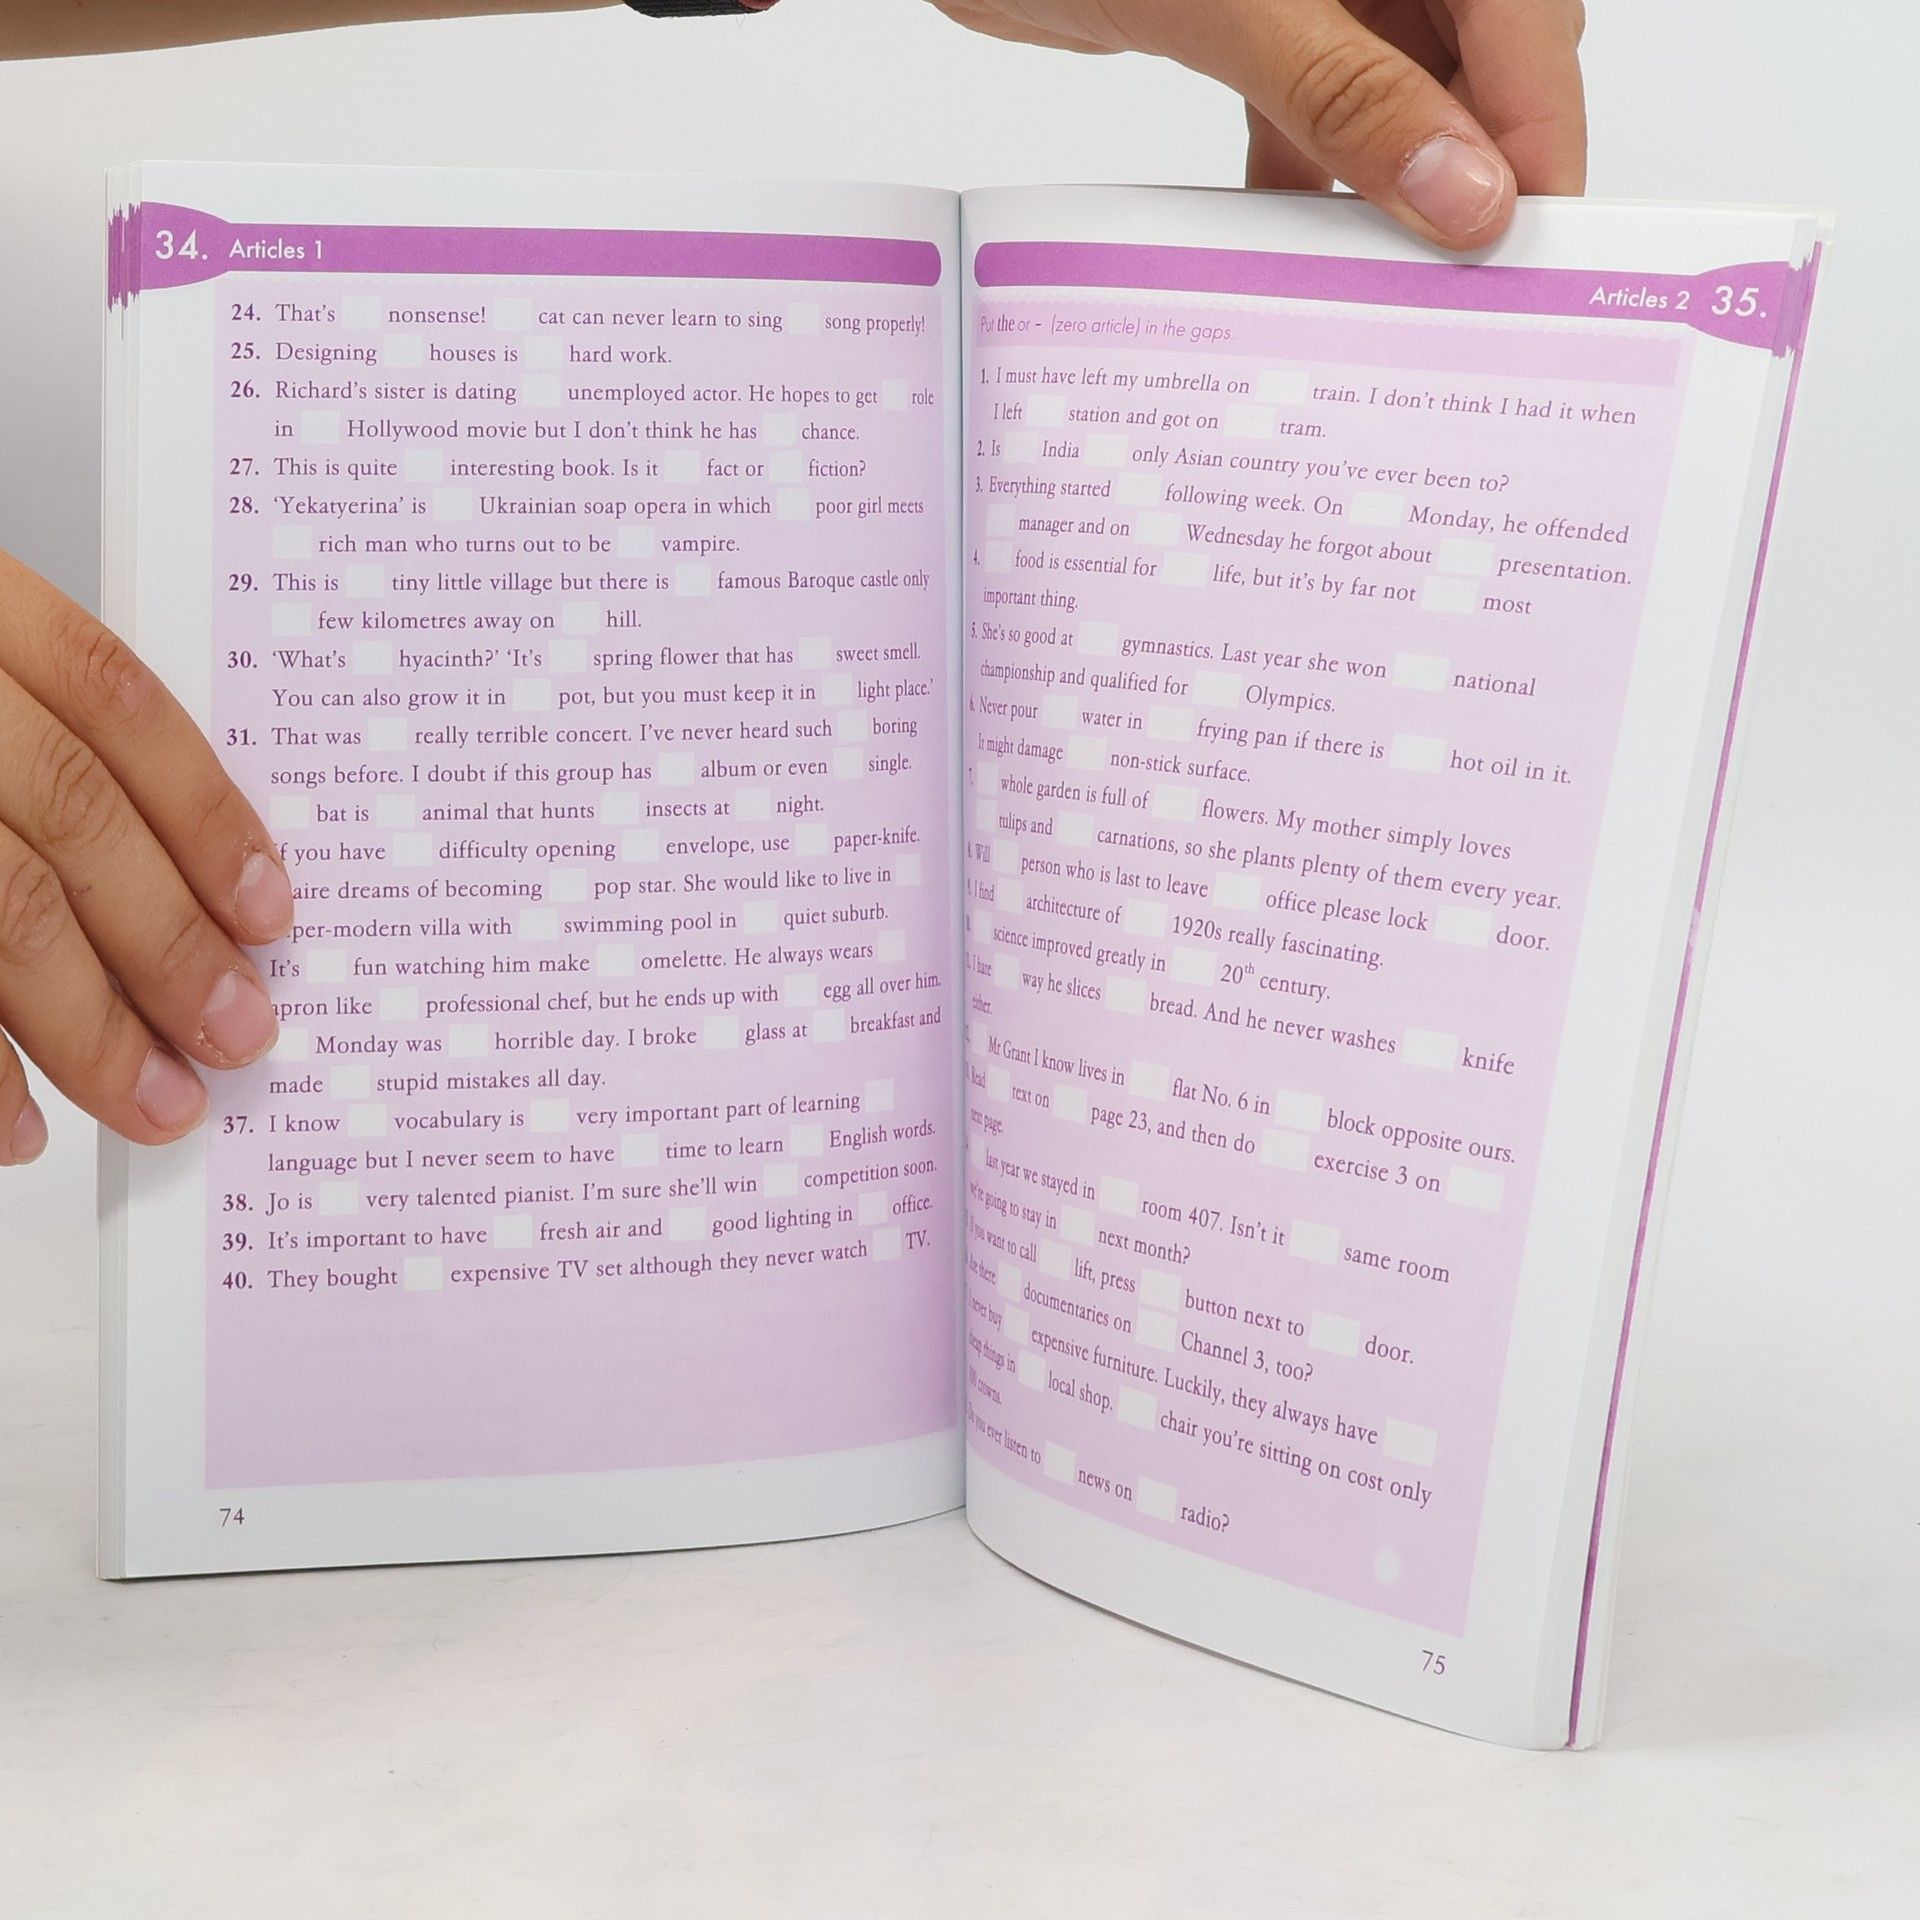 34. Articles 1
24. That's nonsense! cat can never learn to sing song properly!
25. Designing houses is hard work.
26. Richard's sister is dating unemployed actor. He hopes to get role
in Hollywood movie but I don't think he has chance.
27. This is quite interesting book. Is it fact or fiction?
28. 'Yekatyerina' is Ukrainian soap opera in which poor girl meets
rich man who turns out to be vampire.
29. This is tiny little village but there is famous Baroque castle only
few kilometres away on hill.
30. 'What's hyacinth?' 'It's spring flower that has sweet smell.
You can also grow it in pot, but you must keep it in light place.'
31. That was really terrible concert. I've never heard such boring
songs before. I doubt if this group has album or even single.
bat is animal that hunts insects at night.
you have difficulty opening envelope, use paper-knife.
dreams of becoming pop star. She would like to live in
per-modern villa with swimming pool in quiet suburb.
It's fun watching him make omelette. He always wears
apron like professional chef, but he ends up with egg all over him.
Monday was horrible day. I broke glass at breakfast and
made stupid mistakes all day.
37. I know vocabulary is very important part of learning
language but I never seem to have time to learn English words.
38. Jo is very talented pianist. I'm sure she'll win competition soon.
39. It's important to have fresh air and good lighting in office.
40. They bought expensive TV set although they never watch TV.
74
Articles 2 35.
Put the or – (zero article) in the gaps.
1. I must have left my umbrella on train. I don't think I had it when
I left station and got on tram.
2. Is India only Asian country you've ever been to?
3. Everything started following week. On Monday, he offended
manager and on Wednesday he forgot about presentation.
4. food is essential for life, but it's by far not most
important thing.
5. She's so good at gymnastics. Last year she won national
championship and qualified for Olympics.
6. Never pour water in frying pan if there is hot oil in it.
It might damage non-stick surface.
7. whole garden is full of flowers. My mother simply loves
tulips and carnations, so she plants plenty of them every year.
8. Will person who is last to leave office please lock door.
9. I find architecture of 1920s really fascinating.
science improved greatly in 20th century.
I hate way he slices bread. And he never washes knife
either.
Mr Grant I know lives in flat No. 6 in block opposite ours.
Read text on page 23, and then do exercise 3 on
next page.
last year we stayed in room 407. Isn't it same room
we're going to stay in next month?
If you want to call lift, press button next to door.
Are there documentaries on Channel 3, too?
I never buy expensive furniture. Luckily, they always have
cheap things in local shop. chair you're sitting on cost only
100 crowns.
Do you ever listen to news on radio?
75